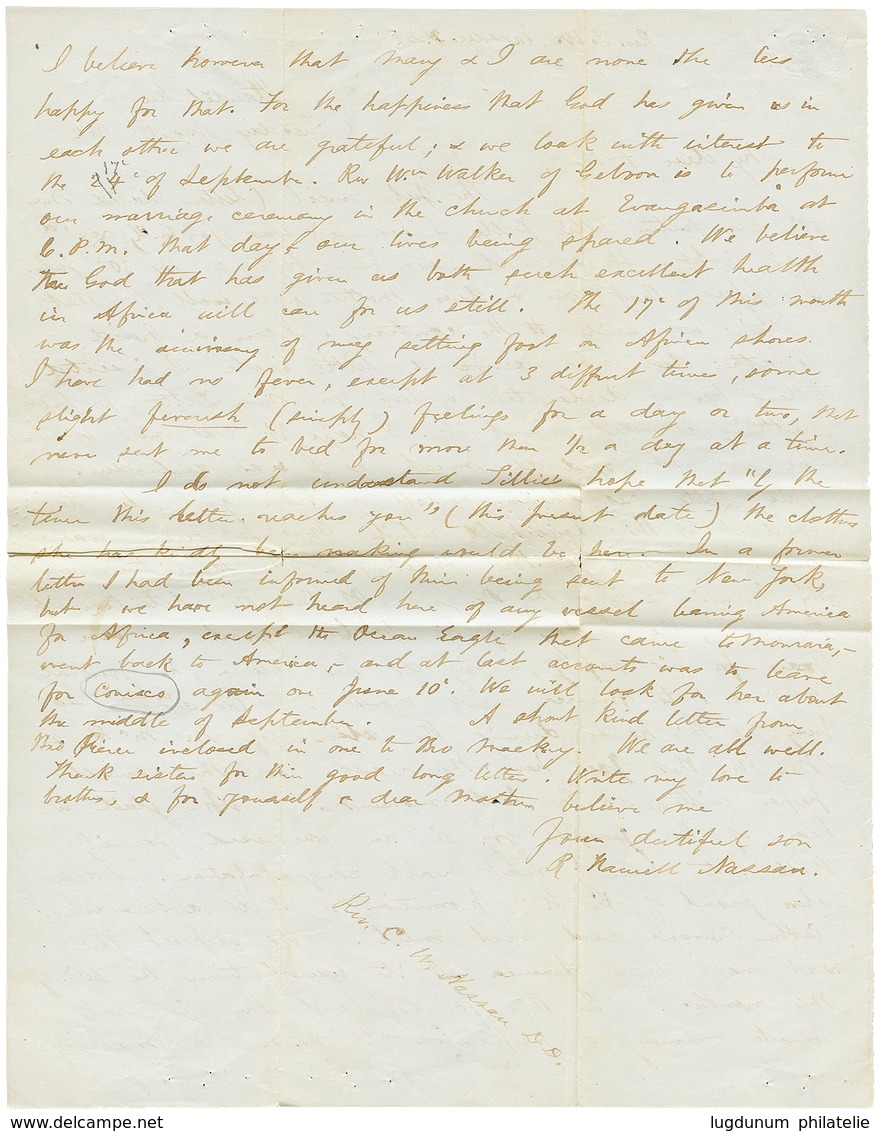 I believe however that Mary & I are none the less
happy for that. For the happiness that God has given us in
each other we are grateful; & we look with interest to
the 24th 17th of September. Rev Wm Walker of Gaboon is to perform
our marriage ceremony in the church at Evangasimba at
6. P.M. that day, our lives being spared. We believe
the God that has given us both such excellent health
in Africa will care for us still. The 17th of this month
was the anniversary of my setting foot on African shores.
I have had no fever, except at 3 different times, some
slight feverish (simply) feelings for a day or two, that
never sent me to bed for more than 1/2 a day at a time.
I do not understand Tillie's hope that "by the
time this letter reaches you" (this present date) the clothes
she has kindly been making would be here. In a former
letter I had been informed of their being sent to New York,
but we have not heard here of any vessel leaving America
for Africa, except the Ocean Eagle that came to Monrovia,-
went back to America,- and at last accounts was to leave
for Corisco again on June 10th. We will look for her about
the middle of September. A short kind letter from
Bro inclosed in one to Bro Mackey. We are all well.
Thank sisters for their good long letters. Write my love to
brothers, & for yourself & dear Mother believe me
Your dutiful son
R. Hamill Nassau.
Rev. C. W. Nassau D.D.
www.delcampe.net
lugdunum philatelie